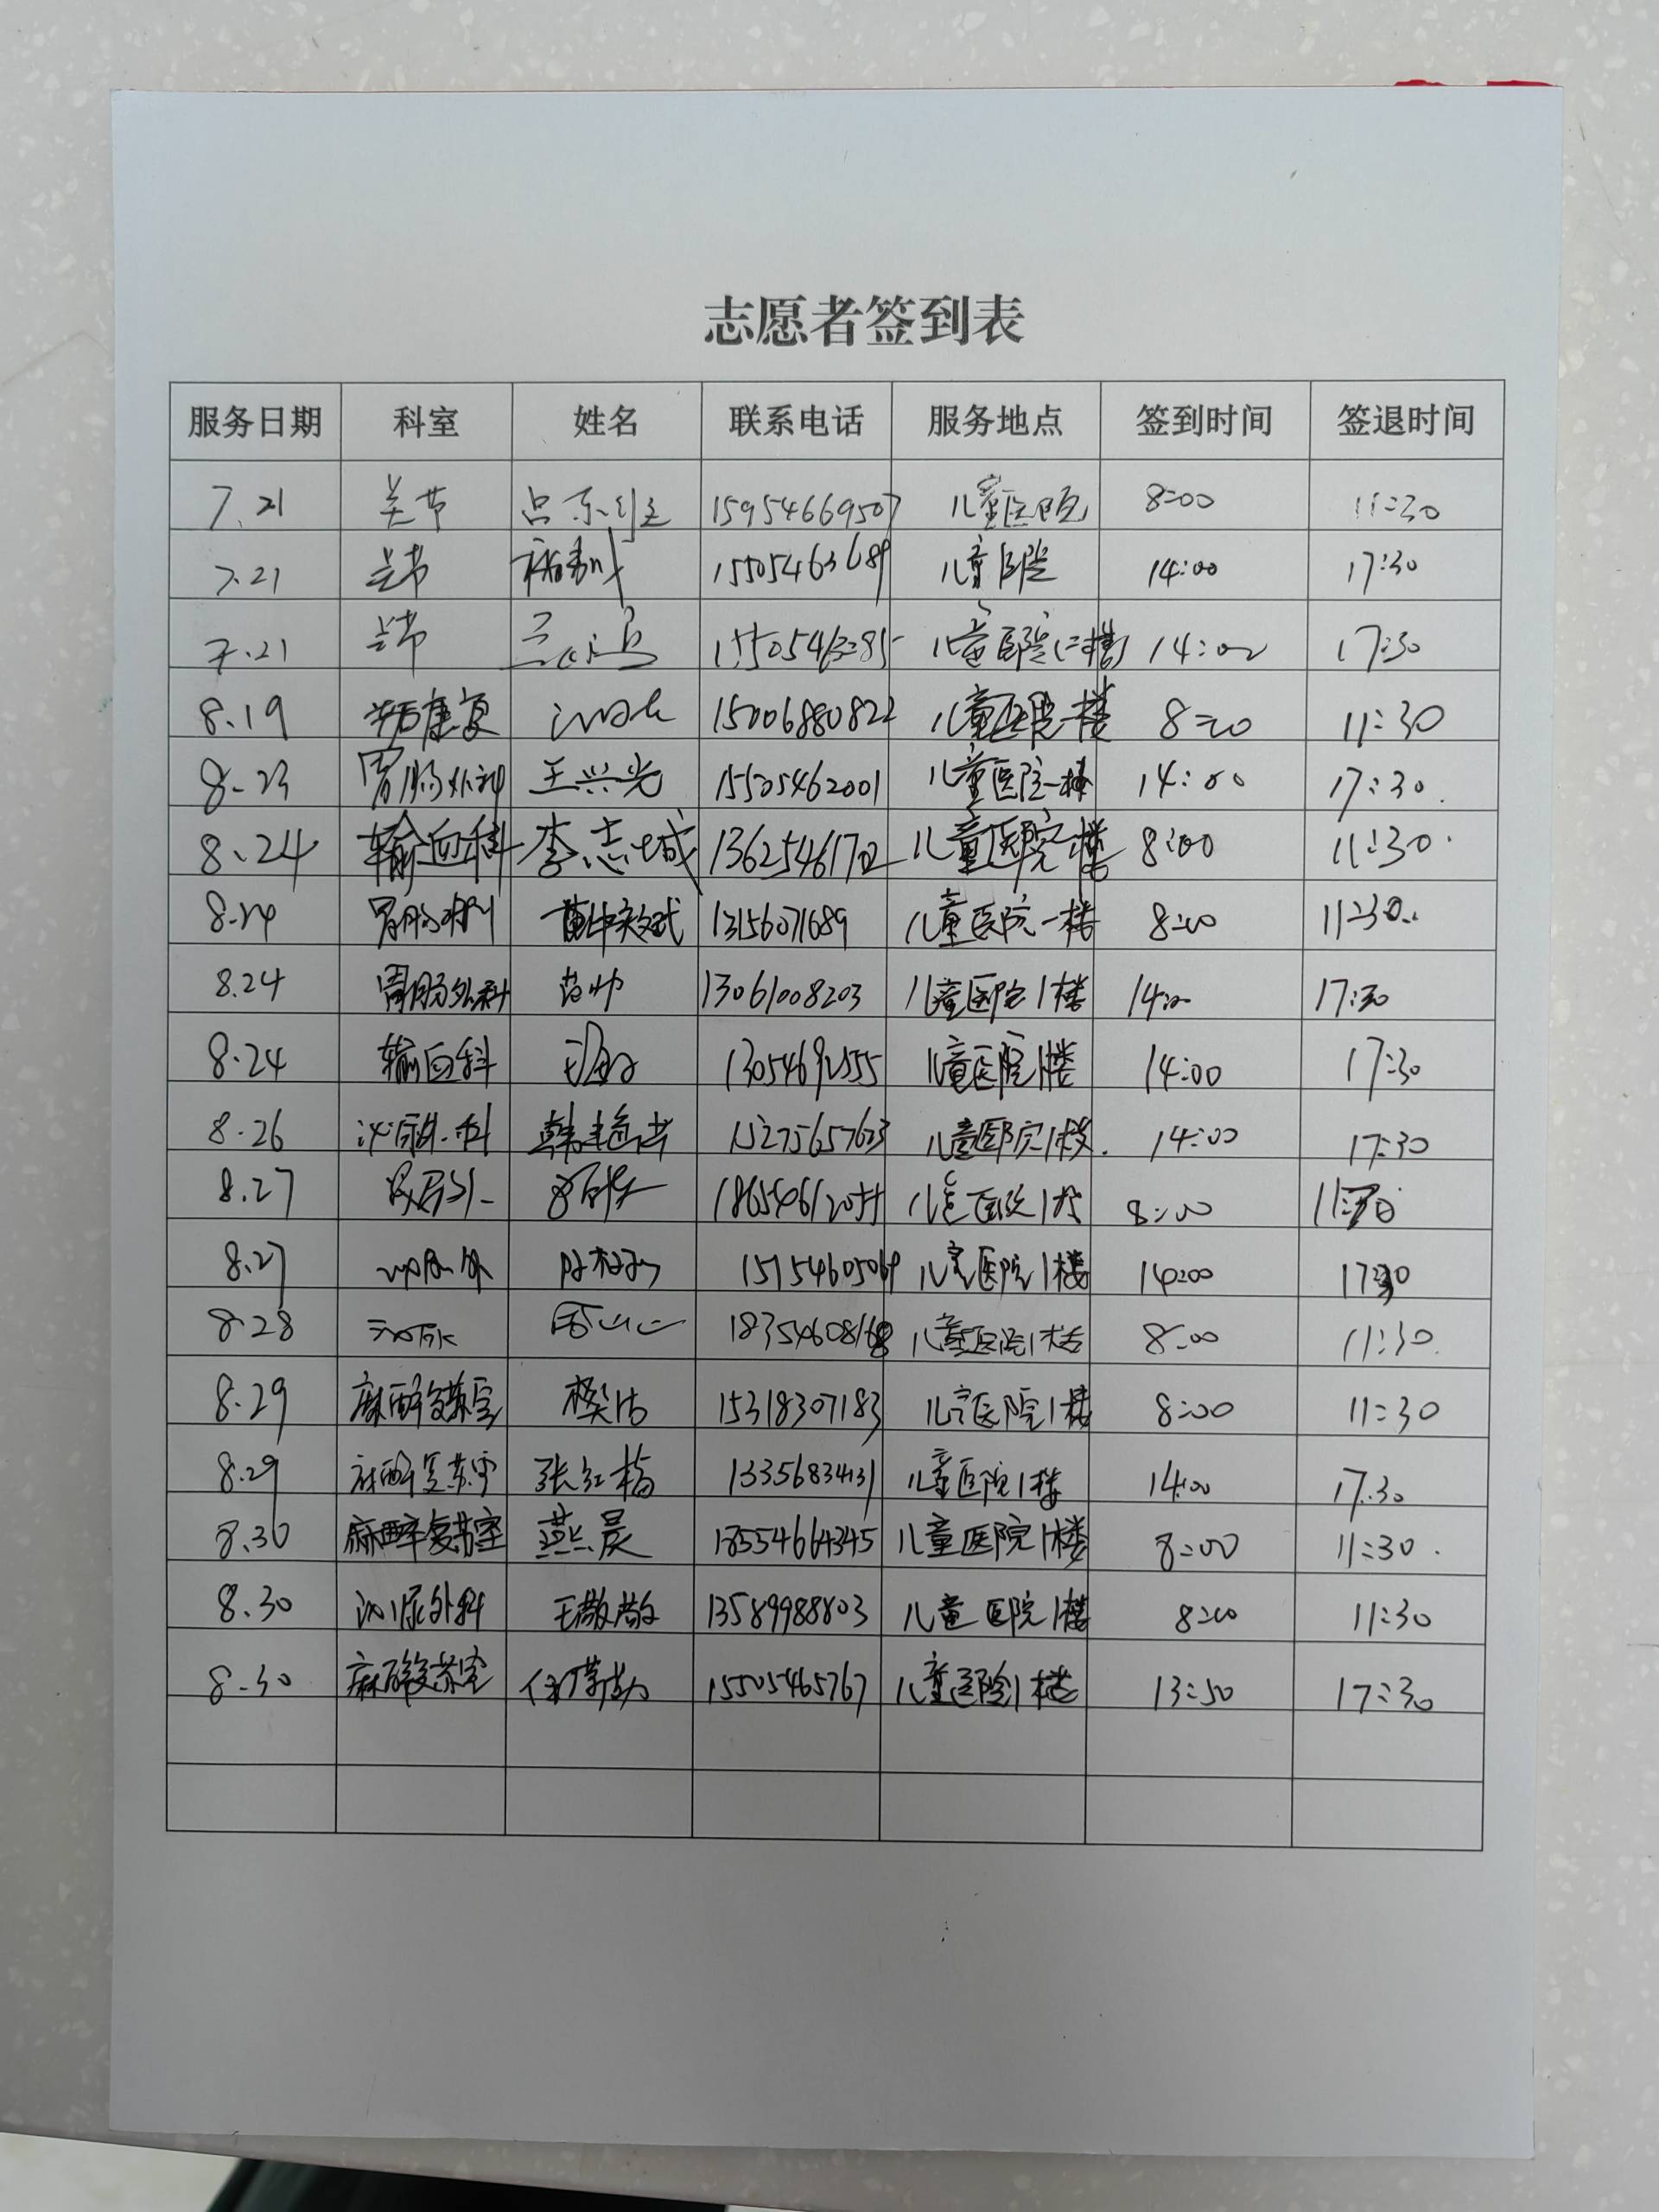 志愿者签到表
服务日期 科室 姓名 联系电话 服务地点 签到时间 签退时间
7.21 关节 15954669507 儿童医院 8:00 11:30
7.21 关节 15505463689 儿童医院 14:00 17:30
7.21 关节 儿童医院(二楼) 14:00 17:30
8.19 康复 15006880822 儿童医院一楼 8:00 11:30
8.23 胃肠外科 王兴光 15505462001 儿童医院一楼 14:00 17:30
8.24 输血科 李志城 13625461702 儿童医院一楼 8:00 11:30
8.24 胃肠外科 13156071689 儿童医院一楼 8:00 11:30
8.24 胃肠外科 13061008203 儿童医院1楼 14:00 17:30
8.24 输血科 儿童医院1楼 14:00 17:30
8.26 泌尿外科 15275657623 儿童医院1楼 14:00 17:30
8.27 儿童医院1楼 8:00 11:30
8.27 15154605069 儿童医院1楼 14:00 17:30
8.28 18354608168 儿童医院1楼 8:00 11:30
8.29 麻醉复苏室 15318307183 儿童医院1楼 8:00 11:30
8.29 麻醉复苏室 张红梅 13356834131 儿童医院1楼 14:00 17:30
8.30 麻醉复苏室 燕晨 18554664345 儿童医院1楼 8:00 11:30
8.30 泌尿外科 王敬敬 13589988803 儿童医院1楼 8:00 11:30
8.30 麻醉复苏室 15505465767 儿童医院1楼 13:50 17:30